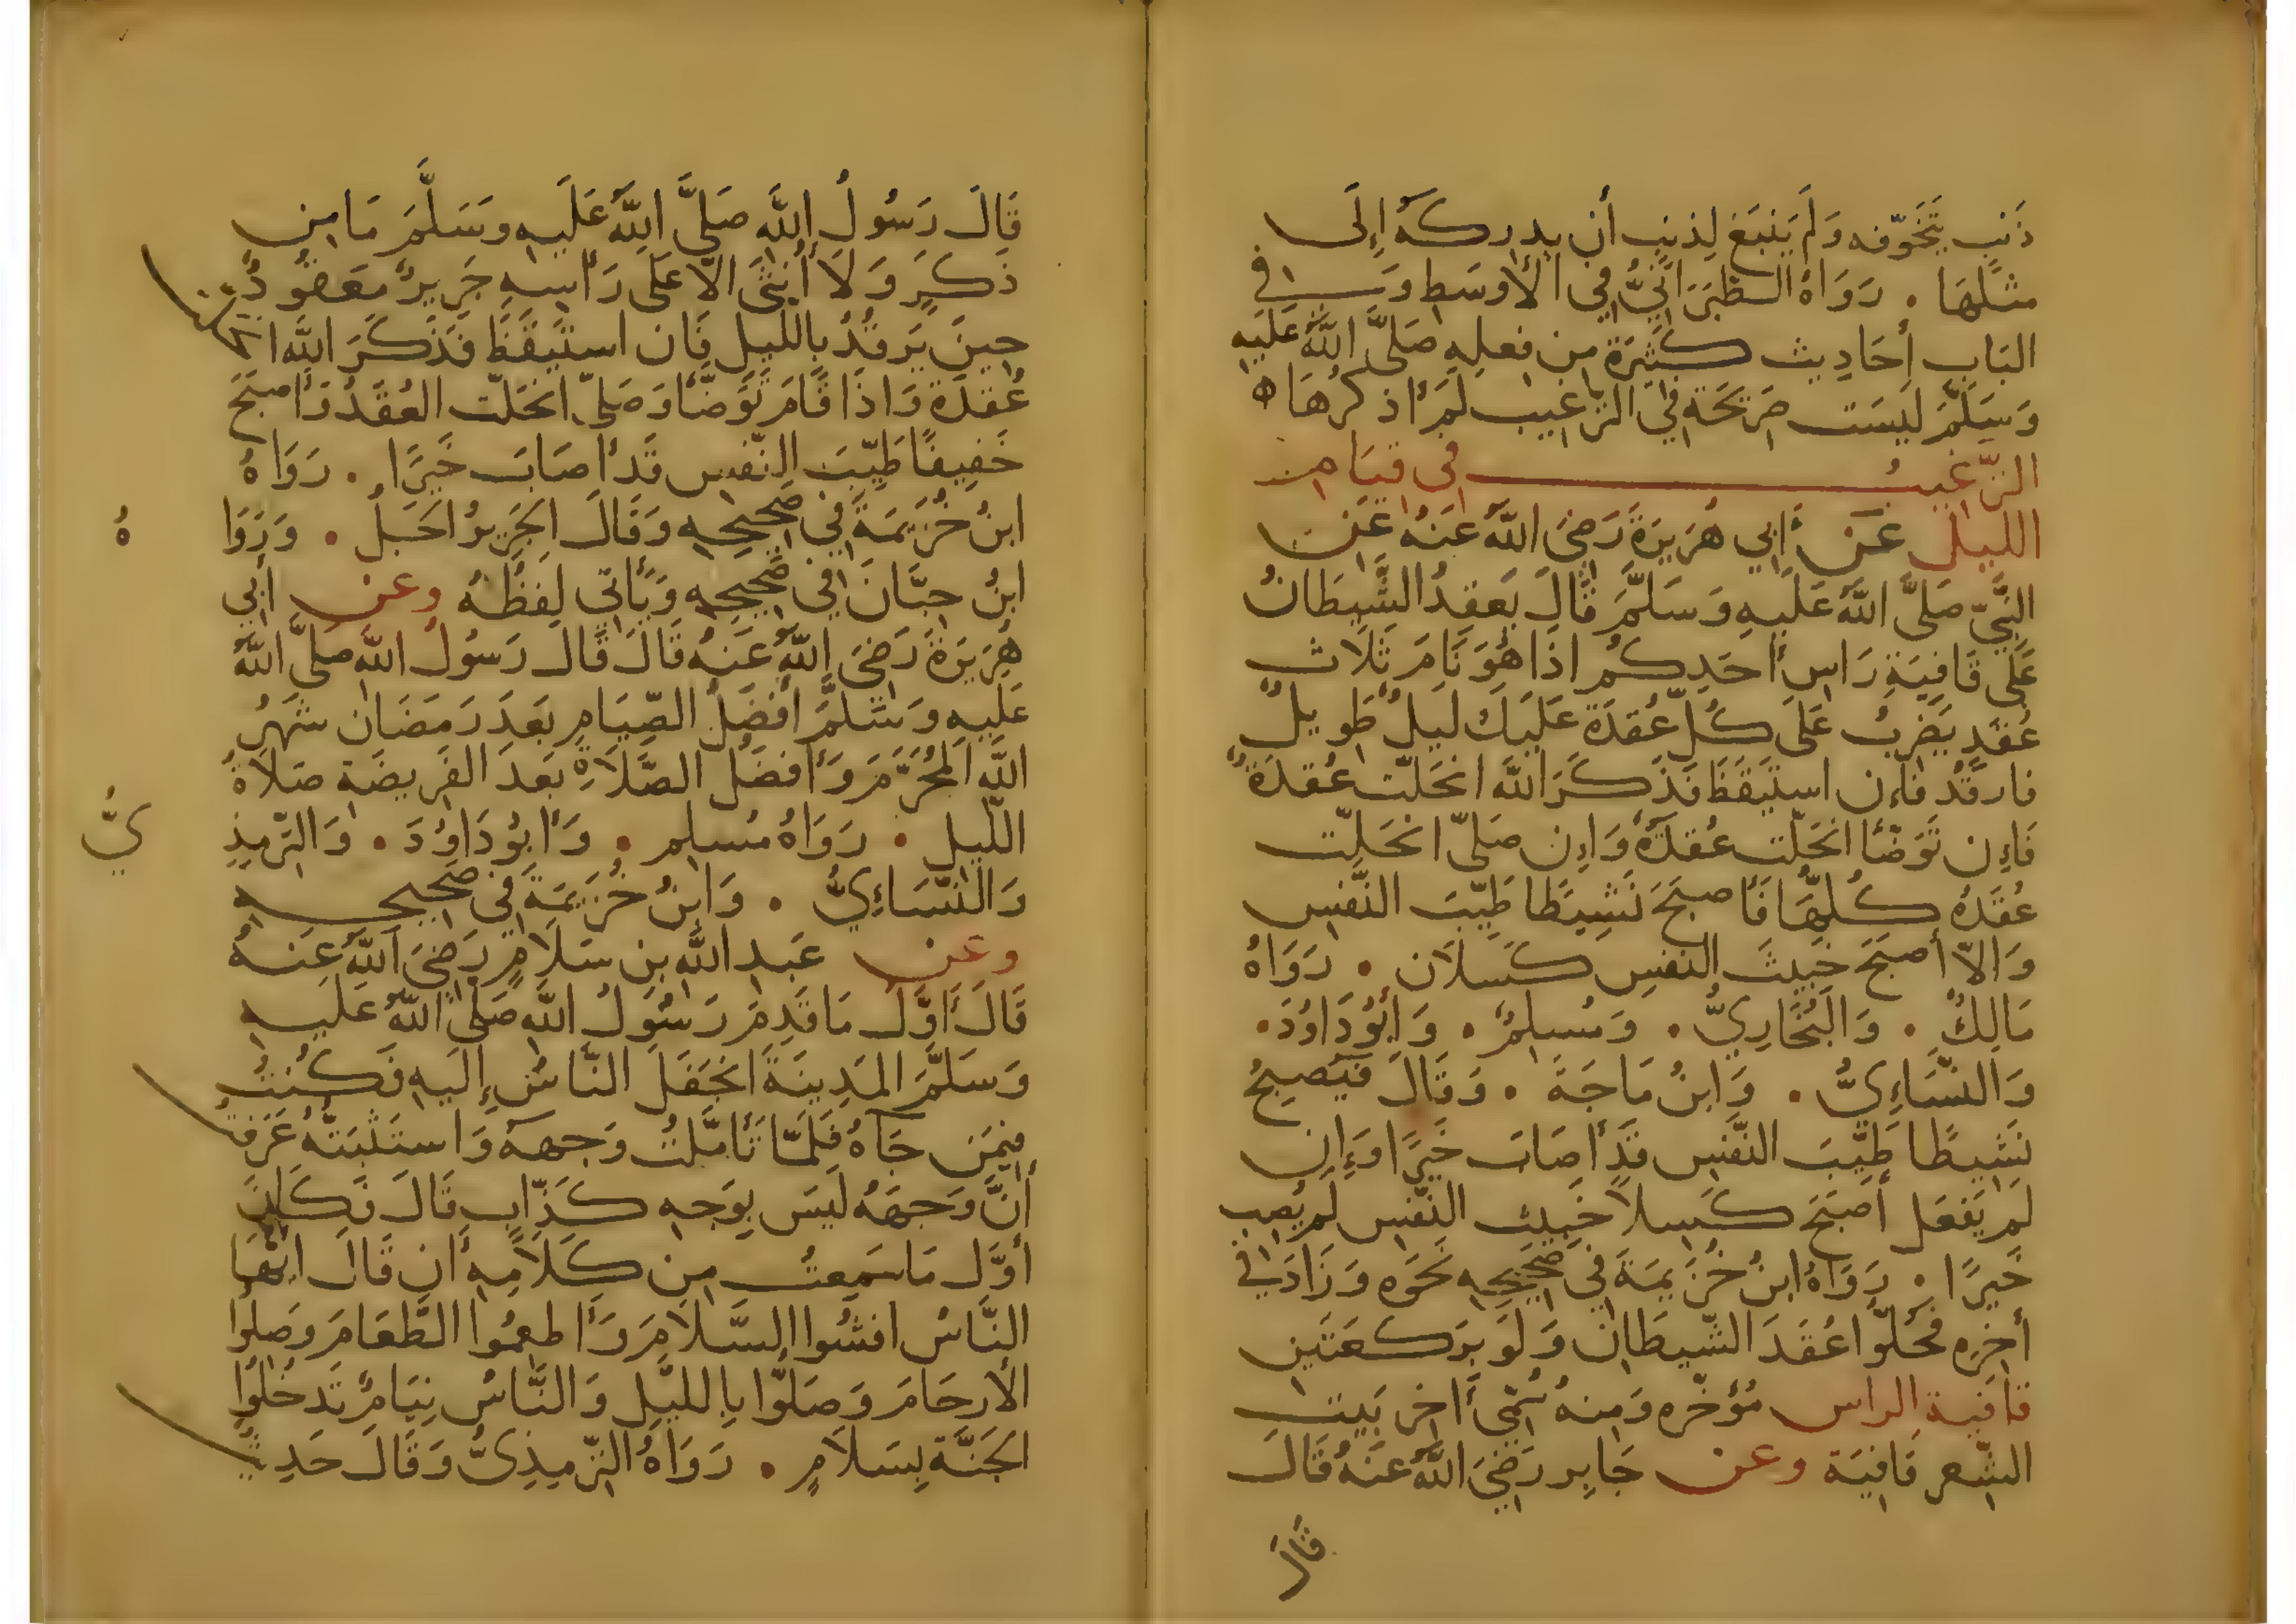 ذَنب يَتَخَوَّفه وَلَم يَنبَغ لِذنبٍ أن يدركهُ إلَى
مثلهَا . رَوَاهُ الطَّبَرَانيُّ في الأوسَطِ وَفي
البَابِ أحَادِيث كَثِيرَة مِن فِعلِهِ صَلَّى اللَّهُ عَلَيهِ
وَسَلَّمَ لَيسَت صَرِيحَة فِي الترَاغيب لَم أذكرهَا ه
الترّغيبُ في قيَام
الليل عَن أبي هُرَيرَةَ رَضِيَ اللَّهُ عَنهُ عَنِ
النَّبِيِّ صَلَّى اللَّهُ عَلَيهِ وَسَلَّمَ قَالَ يَعقِدُ الشَّيطَانُ
عَلَى قَافِيَةِ رَاسِ أحَدِكُم اذَا هُوَ نَامَ ثَلَاث
عُقَدٍ يَضرِبُ عَلَى كُلِّ عُقدَة عَلَيكَ لَيلٌ طَوِيلٌ
فارقُد فَإن استَيقَظَ فَذَكَرَ اللَّهَ انحَلَّت عُقدَةٌ
فَإن تَوَضَّأ انحَلَّت عُقدَةٌ وَإن صَلَّى انحَلَّت
عُقَدُهُ كُلُّهَا فَأصبَحَ نَشِيطًا طَيِّبَ النَّفسِ
وَالاّ أصبَحَ خَبِيثَ النَّفسِ كَسلَان . رَوَاهُ
مَالِكٌ . وَالبُخَارِيُّ . وَمُسلِمٌ . وَأبُودَاوُدَ .
وَالنَّسَاءِيُّ . وَابنُ مَاجَةَ . وَقَالَ فَيُصبِحُ
نَشِيطًا طَيِّبَ النَّفسِ قَد أصَابَ خَيرًا وَإن
لَم يَفعَل أصبَحَ كَسِلًا خَبِيثَ النَّفسِ لَم يُصِب
خَيرًا . رَوَاهُ ابنُ خُزَيمَةَ في صَحِيحِهِ نَحوَه وَزَادَ في
أخِرِهِ فَحُلُّوا عُقَدَ الشَّيطَانِ وَلَو بِرَكعَتَينِ
قافية الراس مُؤخّره وَمِنهُ سُمّي أاخر بَيتِ
الشِّعر قَافِيَة وعن جَابِر رَضِيَ اللَّهُ عَنهُ قَالَ
قَالَ
قَالَ رَسُولُ اللَّهِ صَلَّى اللَّهُ عَلَيهِ وسَلَّمَ مَا مِن
ذَكَرٍ وَلَا أُنثَى الاّ عَلَى رَأسِهِ جَرِيرٌ مَعقُودٌ
حِينَ يَرقُدُ بِالَّليلِ فَان استَيقَظَ فَذَكَرَ اللَّهَ انحلّت
عُقدَةٌ وَاذَا قَامَ تَوَضَّأ وَصَلَّى انحَلَّت العُقَدُ وَأصبَحَ
خَفِيفًا طَيِّبَ النَّفسِ قَد أصَابَ خَيرًا . رَوَاهُ
ابنُ خُزَيمَةَ في صَحِيحِهِ وَقَالَ الجَرِيرُ الحَبلُ . وَرَوَا
هُ
ابنُ حِبَّانَ في صَحِيحِهِ وَيَأتي لَفظُهُ وعن أبي
هُرَيرَةَ رَضِيَ اللَّهُ عَنهُ قَالَ قَالَ رَسُولُ اللَّهِ صَلَّى اللَّهُ
عَلَيهِ وَسَلَّمَ أفضَلُ الصِّيَامِ بَعدَ رَمَضَان شَهرُ
اللَّهِ المُحَرَّمَ وَأفضَلُ الصَّلَاةِ بَعدَ الفَرِيضَة صَلَاةُ
اللَّيلِ . رَوَاهُ مُسلِم . وَأبُودَاوُدَ . وَالتِّرمِذِ
يُّ
وَالنَّسَاءِيُّ . وَابنُ خُزَيمَةَ في صَحِيحِهِ
وعن عَبدِ اللَّهِ بنِ سَلَامٍ رَضِيَ اللَّهُ عَنهُ
قَالَ أوَّلَ مَا قَدِمَ رَسُولُ اللَّهِ صَلَّى اللَّهُ عَلَيهِ
وَسَلَّمَ المَدِينَةَ انجَفَلَ النَّاسُ إلَيهِ فَكُنتُ
فِيمَن جَاهُ فَلَمَّا تَأمَّلتُ وَجهَهُ وَاستَثبَتُّهُ عَرَفتُ
أنَّ وَجهَهُ لَيسَ بِوَجهِ كَذَّابٍ قَالَ فَكَانَ
أوَّلَ مَا سَمِعتُ مِن كَلَامِهِ أن قَالَ ايُّهَا
النَّاسُ افشُوا السَّلَامَ وَأطعِمُوا الطَّعَامَ وَصِلُوا
الأرحَامَ وَصَلُّوا بِالليَّلِ وَالنَّاسُ نِيَامٌ تَدخُلُوا
الجَنَّةَ بِسَلَامٍ . رَوَاهُ التِّرمِذِيُّ وَقَالَ حَدِيثٌ